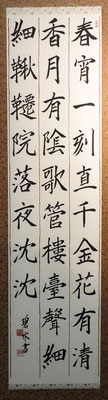 春宵一刻直千金花有清
香月有陰歌管樓臺聲細
細鞦韆院落夜沈沈